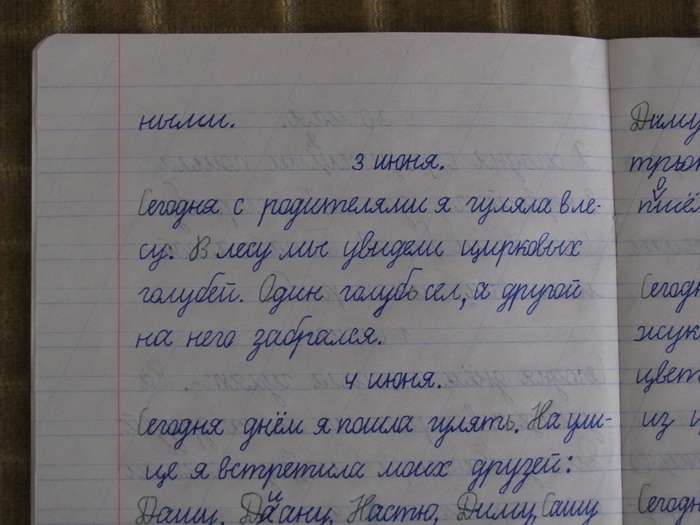 ными.
3 июня.
Сегодня с родителями я гуляла в ле-
су. В лесу мы увидели цирковых
голубей. Один голубь сел, а другой
на него забрался.
4 июня.
Сегодня днём я пошла гулять. На ули-
це я встретила моих друзей:
Дашу, Даяну, Настю, Диму, Сашу
Диму
жук
цвет
из